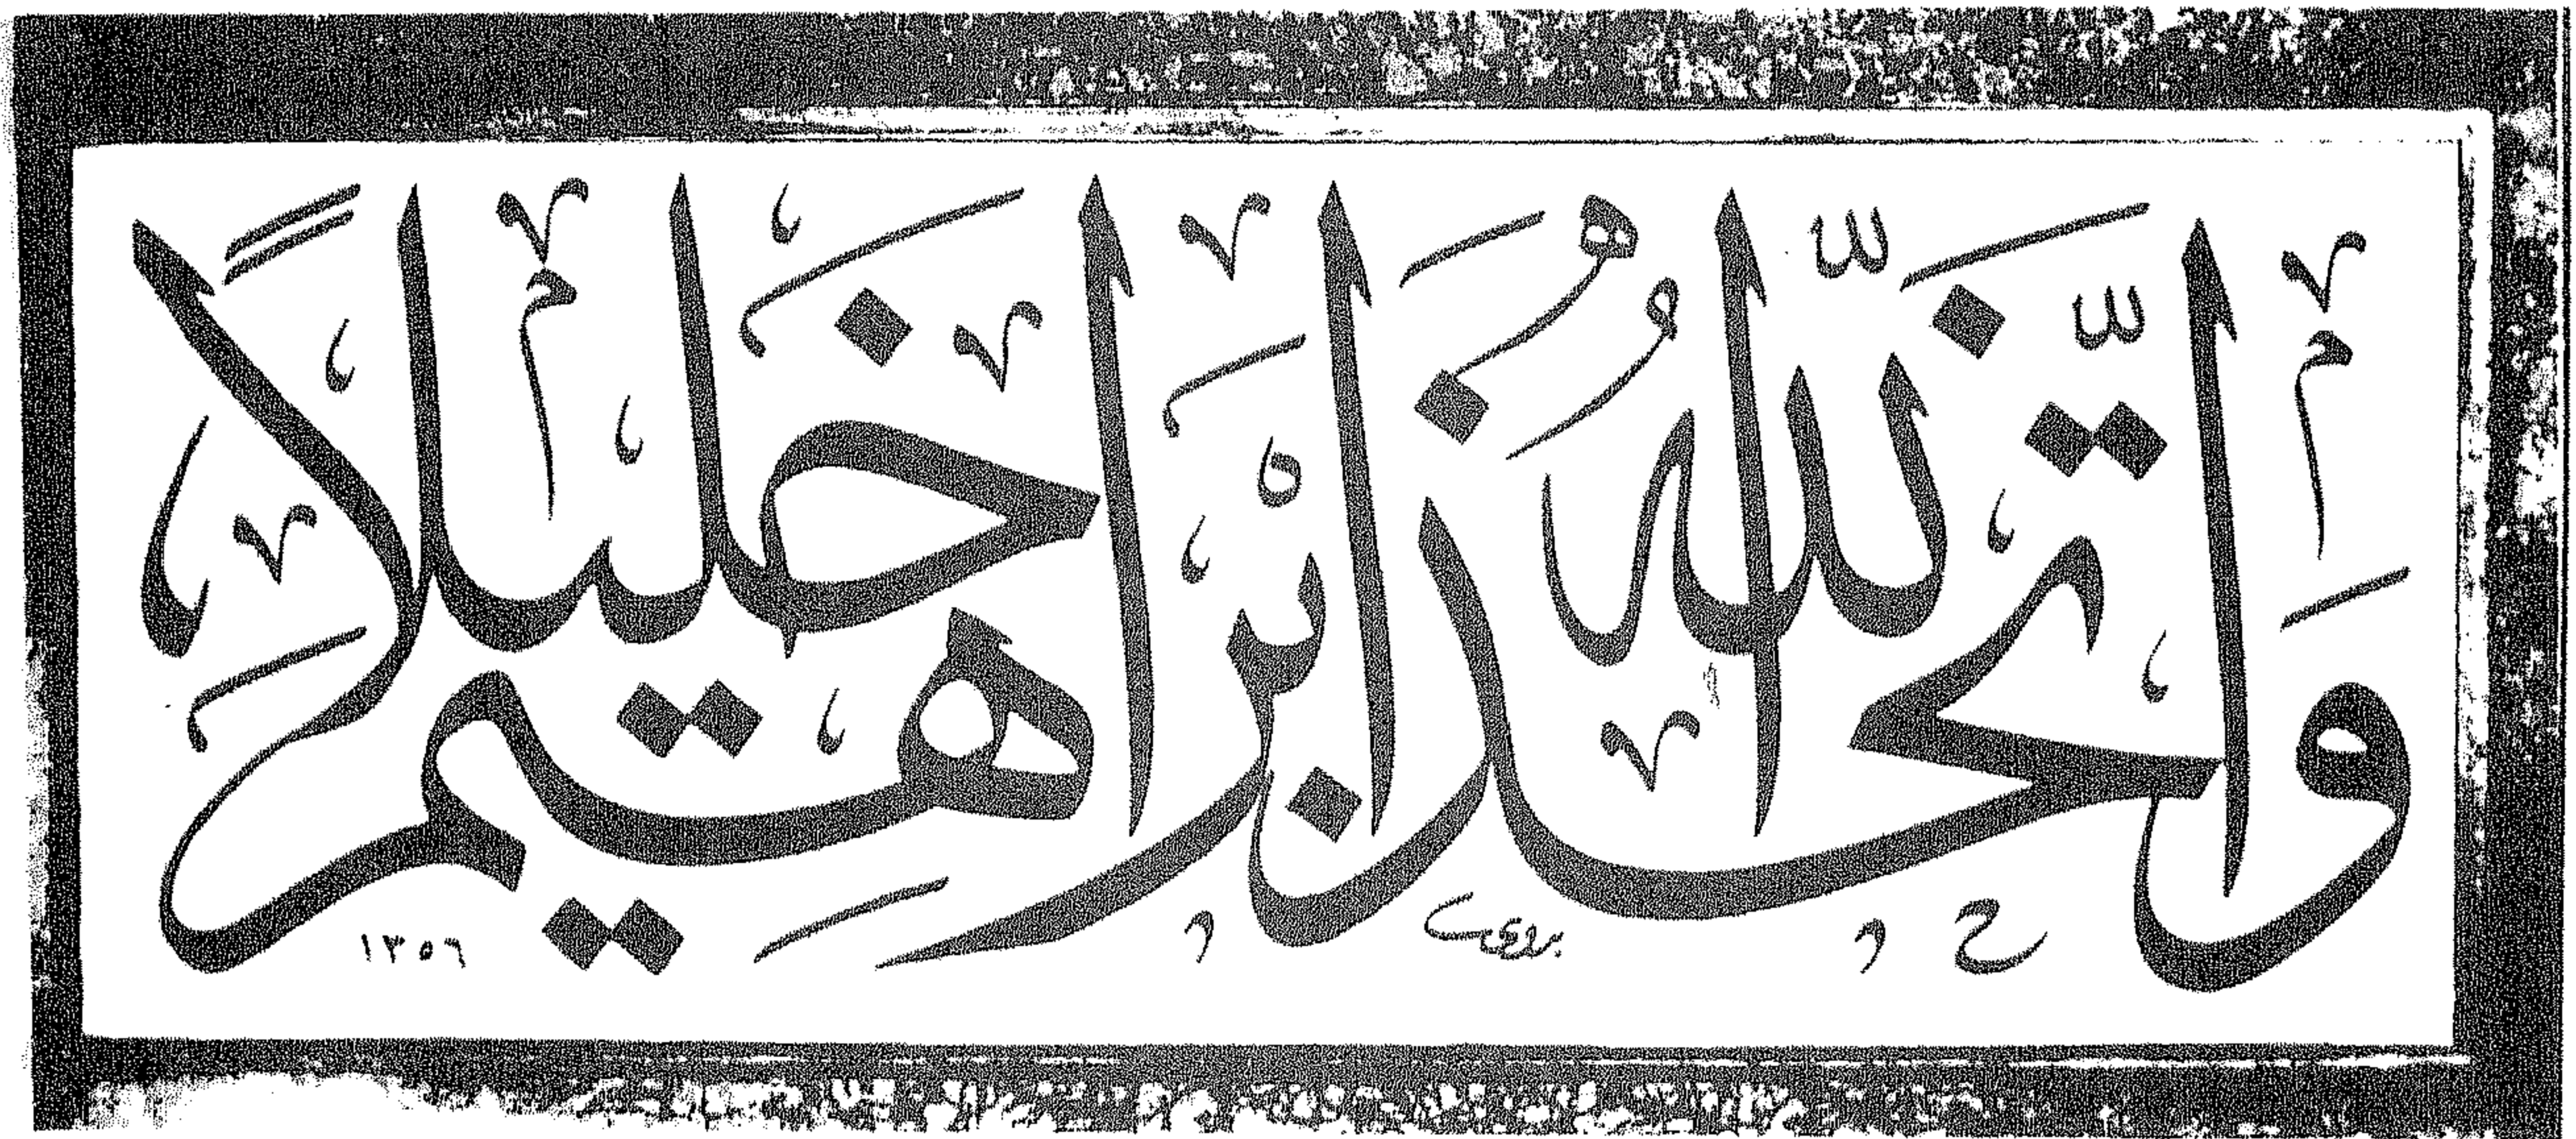 وَاتَّخَذَ اللَّهُ إِبْرَاهِيمَ خَلِيلًا
١٣٥٦